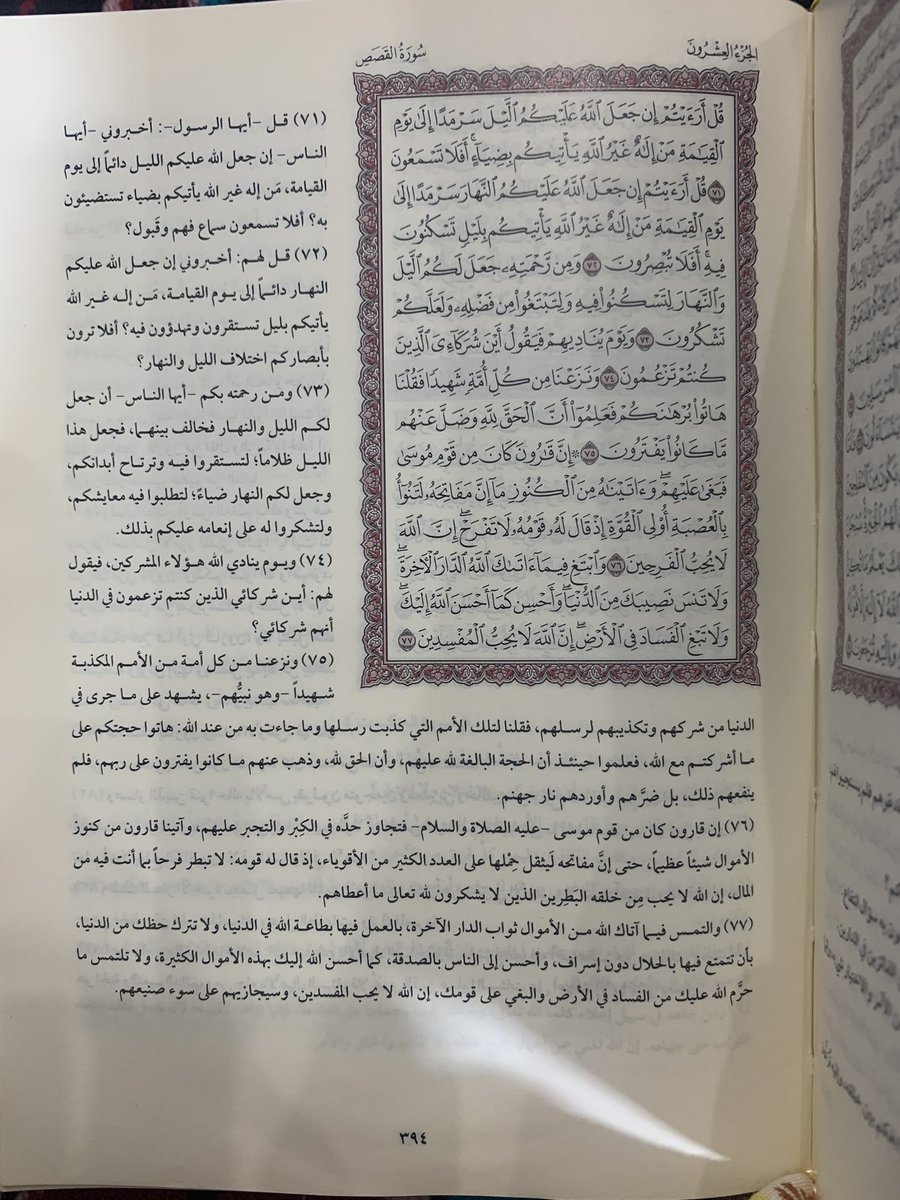 الجُزْءُ العِشْرُونَ
سُورَةُ القَصَصِ
قُلْ أَرَءَيْتُمْ إِن جَعَلَ ٱللَّهُ عَلَيْكُمُ ٱلَّيْلَ سَرْمَدًا إِلَىٰ يَوْمِ
ٱلْقِيَٰمَةِ مَنْ إِلَٰهٌ غَيْرُ ٱللَّهِ يَأْتِيكُم بِضِيَآءٍ ۖ أَفَلَا تَسْمَعُونَ
٧١ قُلْ أَرَءَيْتُمْ إِن جَعَلَ ٱللَّهُ عَلَيْكُمُ ٱلنَّهَارَ سَرْمَدًا إِلَىٰ
يَوْمِ ٱلْقِيَٰمَةِ مَنْ إِلَٰهٌ غَيْرُ ٱللَّهِ يَأْتِيكُم بِلَيْلٍ تَسْكُنُونَ
فِيهِ ۖ أَفَلَا تُبْصِرُونَ ٧٢ وَمِن رَّحْمَتِهِۦ جَعَلَ لَكُمُ ٱلَّيْلَ
وَٱلنَّهَارَ لِتَسْكُنُوا۟ فِيهِ وَلِتَبْتَغُوا۟ مِن فَضْلِهِۦ وَلَعَلَّكُمْ
تَشْكُرُونَ ٧٣ وَيَوْمَ يُنَادِيهِمْ فَيَقُولُ أَيْنَ شُرَكَآءِىَ ٱلَّذِينَ
كُنتُمْ تَزْعُمُونَ ٧٤ وَنَزَعْنَا مِن كُلِّ أُمَّةٍ شَهِيدًا فَقُلْنَا
هَاتُوا۟ بُرْهَٰنَكُمْ فَعَلِمُوٓا۟ أَنَّ ٱلْحَقَّ لِلَّهِ وَضَلَّ عَنْهُم
مَّا كَانُوا۟ يَفْتَرُونَ ٧٥ ۞ إِنَّ قَٰرُونَ كَانَ مِن قَوْمِ مُوسَىٰ
فَبَغَىٰ عَلَيْهِمْ ۖ وَءَاتَيْنَٰهُ مِنَ ٱلْكُنُوزِ مَآ إِنَّ مَفَاتِحَهُۥ لَتَنُوٓأُ
بِٱلْعُصْبَةِ أُو۟لِى ٱلْقُوَّةِ إِذْ قَالَ لَهُۥ قَوْمُهُۥ لَا تَفْرَحْ ۖ إِنَّ ٱللَّهَ
لَا يُحِبُّ ٱلْفَرِحِينَ ٧٦ وَٱبْتَغِ فِيمَآ ءَاتَىٰكَ ٱللَّهُ ٱلدَّارَ ٱلْءَاخِرَةَ ۖ
وَلَا تَنسَ نَصِيبَكَ مِنَ ٱلدُّنْيَا ۖ وَأَحْسِن كَمَآ أَحْسَنَ ٱللَّهُ إِلَيْكَ ۖ
وَلَا تَبْغِ ٱلْفَسَادَ فِى ٱلْأَرْضِ ۖ إِنَّ ٱللَّهَ لَا يُحِبُّ ٱلْمُفْسِدِينَ ٧٧
(٧١) قل –أيها الرسول–: أخبروني –أيها
الناس– إن جعل الله عليكم الليل دائماً إلى يوم
القيامة، مَن إله غير الله يأتيكم بضياء تستضيئون
به؟ أفلا تسمعون سماع فهم وقَبول؟
(٧٢) قل لهم: أخبروني إن جعل الله عليكم
النهار دائماً إلى يوم القيامة، مَن إله غير الله
يأتيكم بليل تستقرون وتهدؤون فيه؟ أفلا ترون
بأبصاركم اختلاف الليل والنهار؟
(٧٣) ومن رحمته بكم –أيها الناس– أن جعل
لكم الليل والنهار فخالف بينهما، فجعل هذا
الليل ظلاماً؛ لتستقروا فيه وترتاح أبدانكم،
وجعل لكم النهار ضياءً؛ لتطلبوا فيه معايشكم،
ولتشكروا له على إنعامه عليكم بذلك.
(٧٤) ويوم ينادي الله هؤلاء المشركين، فيقول
لهم: أين شركائي الذين كنتم تزعمون في الدنيا
أنهم شركائي؟
(٧٥) ونزعنا من كل أمة من الأمم المكذبة
شهيداً –وهو نبيُّهم–، يشهد على ما جرى في
الدنيا من شركهم وتكذيبهم لرسلهم، فقلنا لتلك الأمم التي كذبت رسلها وما جاءت به من عند الله: هاتوا حجتكم على
ما أشركتم مع الله، فعلموا حينئذ أن الحجة البالغة لله عليهم، وأن الحق لله، وذهب عنهم ما كانوا يفترون على ربهم، فلم
ينفعهم ذلك، بل ضرَّهم وأوردهم نار جهنم.
(٧٦) إن قارون كان من قوم موسى –عليه الصلاة والسلام– فتجاوز حدَّه في الكِبْر والتجبر عليهم، وآتينا قارون من كنوز
الأموال شيئاً عظيماً، حتى إنَّ مفاتحه لَيثقل حِمْلها على العدد الكثير من الأقوياء، إذ قال له قومه: لا تبطر فرحاً بما أنت فيه من
المال، إن الله لا يحب مِن خلقه البَطِرين الذين لا يشكرون لله تعالى ما أعطاهم.
(٧٧) والتمس فيما آتاك الله من الأموال ثواب الدار الآخرة، بالعمل فيها بطاعة الله في الدنيا، ولا تترك حظك من الدنيا،
بأن تتمتع فيها بالحلال دون إسراف، وأحسن إلى الناس بالصدقة، كما أحسن الله إليك بهذه الأموال الكثيرة، ولا تلتمس ما
حرَّم الله عليك من الفساد في الأرض والبغي على قومك، إن الله لا يحب المفسدين، وسيجازيهم على سوء صنيعهم.
٣٩٤